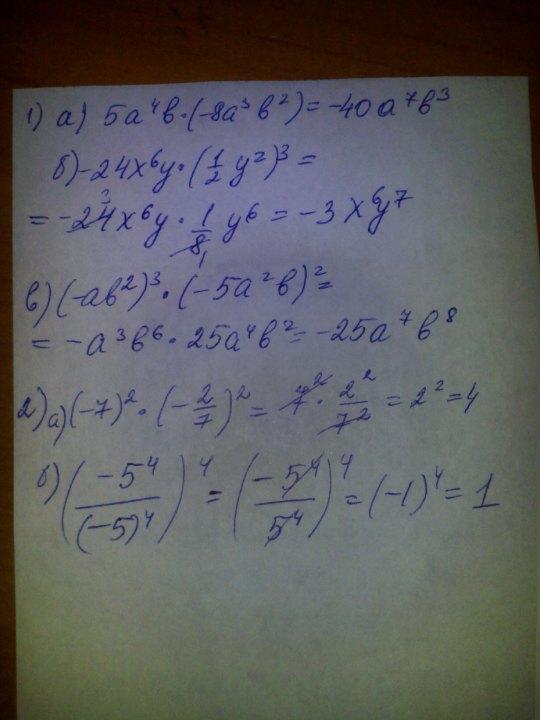 1) а) 5a⁴b·(-8a³b²)=-40a⁷b³
б)-24x⁶y·(1/2 y²)³=
=-24x⁶y·1/8 y⁶=-3x⁶y⁷
в)(-ab²)³·(-5a²b)²=
=-a³b⁶·25a⁴b²=-25a⁷b⁸
2)а)(-7)²·(-2/7)²=7²·2²/7²=2²=4
б)(-5⁴/(-5)⁴)⁴=(-5⁴/5⁴)⁴=(-1)⁴=1